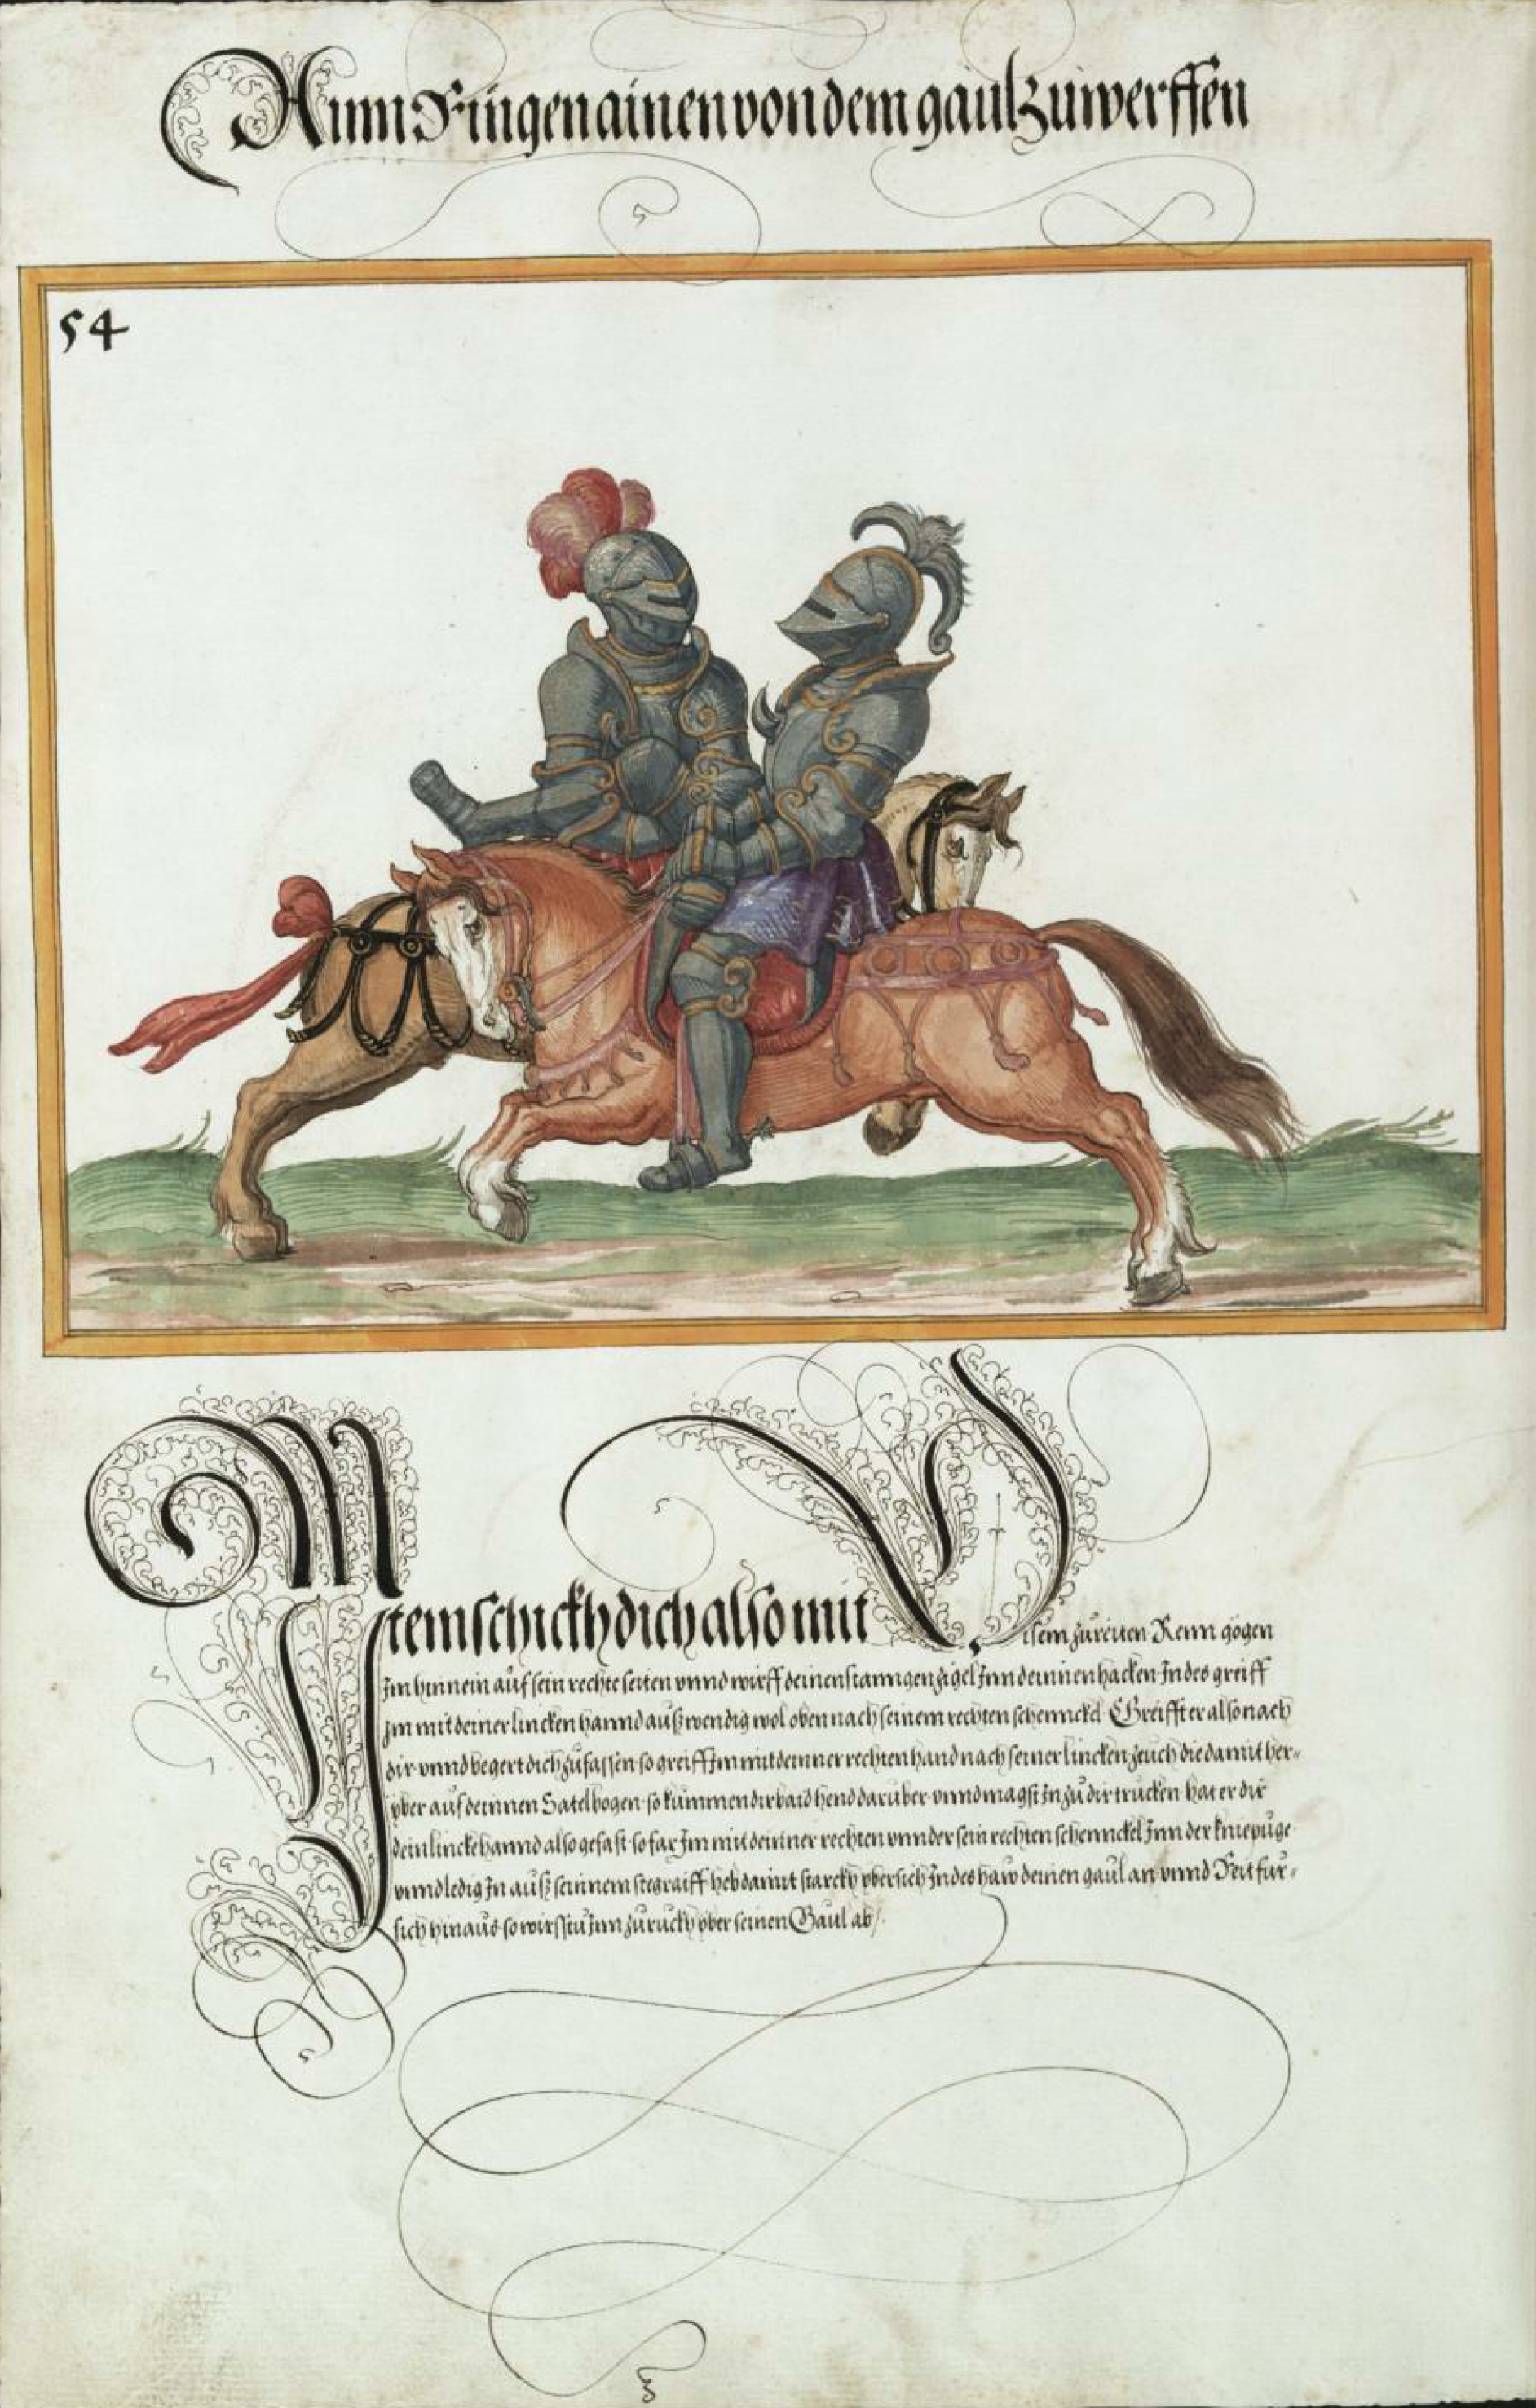 Ainn Ringen ainen von dem gaul zuwerffen
54
Item schickh dich also mit
disem zureiten Renn gögen
Im hinnein auf sein rechte seiten vnnd wirff deinen stanngen zigel Inn deinnen hacken Indes greiff
Im mit deiner lincken hannd außwendig wol oben nach seinem rechten schennckel Greifft er also nach
dir vnnd begert dich zufassen so greiff Im mit deinner rechten hand nach seiner lincken zeuch die damit her-
yber auf deinnen Satelbogen so kummen dir baid hend daruber vnnd magst In zu dir trucken hat er dir
dein lincke hannd also gefast so far Im mit deinner rechten vnnder sein rechten schennckel Inn der kniepüge
vnnd ledig In auß seinnem stegraiff heb damit starckh ybersich Indes haw deinen gaul an vnnd Reit für-
sich hinaus so wirfstu Inn zuruckh yber seinen Gaul ab